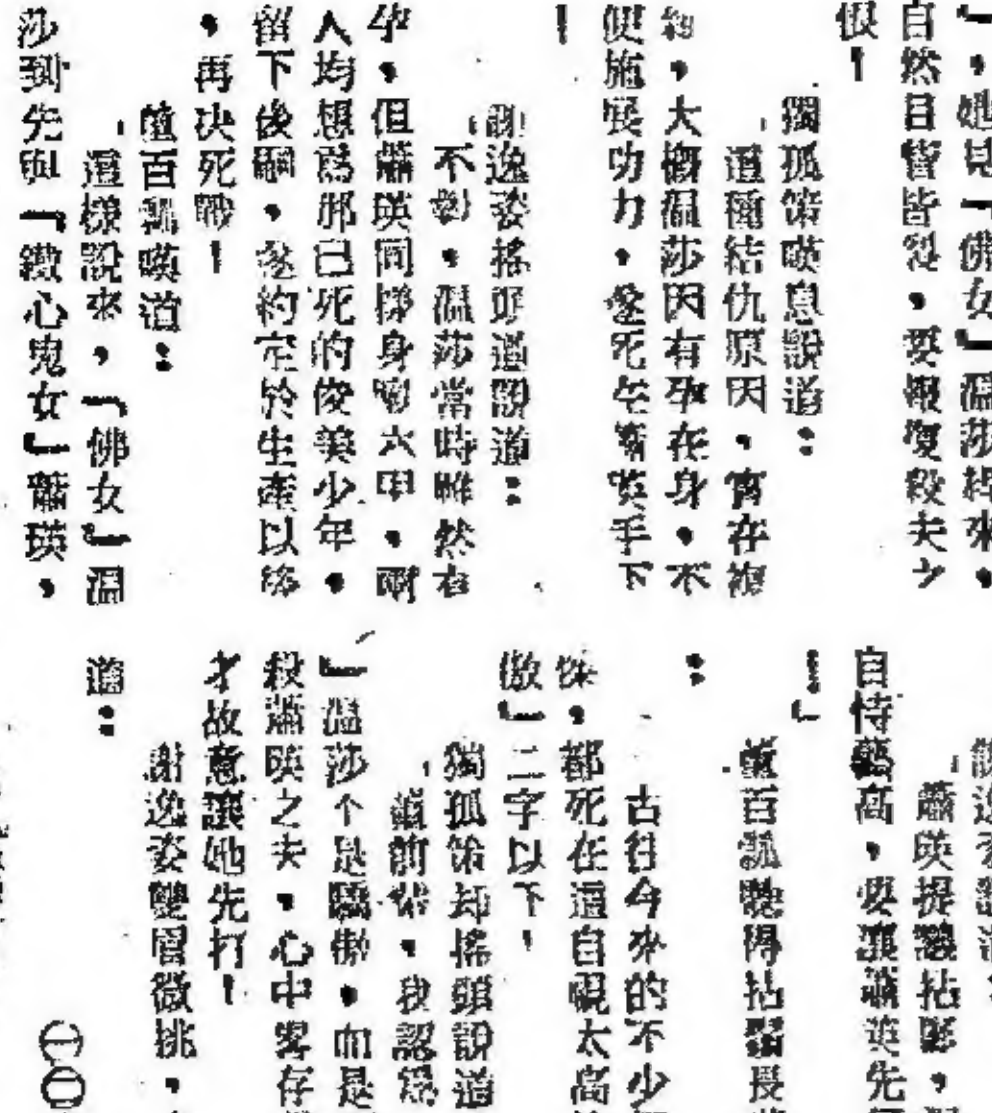 』,她見『佛女』溫莎趕來,
自然目眥皆裂,要報復殺夫之
恨!
獨孤策嘆息說道:
「這種結仇原因,實在複
雜,大概溫莎因有孕在身,不
便施展功力,遂死在蕭瑛手下
!
謝逸姿搖頭道說道:
「不對,溫莎當時雖然有
孕,但蕭瑛同樣身懷六甲,兩
人均想為那已死的俊美少年,
留下後嗣,遂約定於生產以後
,再決死戰!
董百瓢嘆道:
「這樣說來,『佛女』溫
莎到先與『鐵心鬼女』蕭瑛,
謝逸姿說道:
「蕭瑛提議拈鬮,
自恃藝高,要讓蕭英先
!」
董百瓢聽得拈鬚長
:
古往今來的不少
傑,都死在這自視太高
傲』二字以下!
獨孤策却搖頭說道
「董前輩,我認為
』溫莎不是驕傲,而是
殺蕭瑛之夫,心中略存
才故意讓她先打!
謝逸姿雙眉微挑,
道: